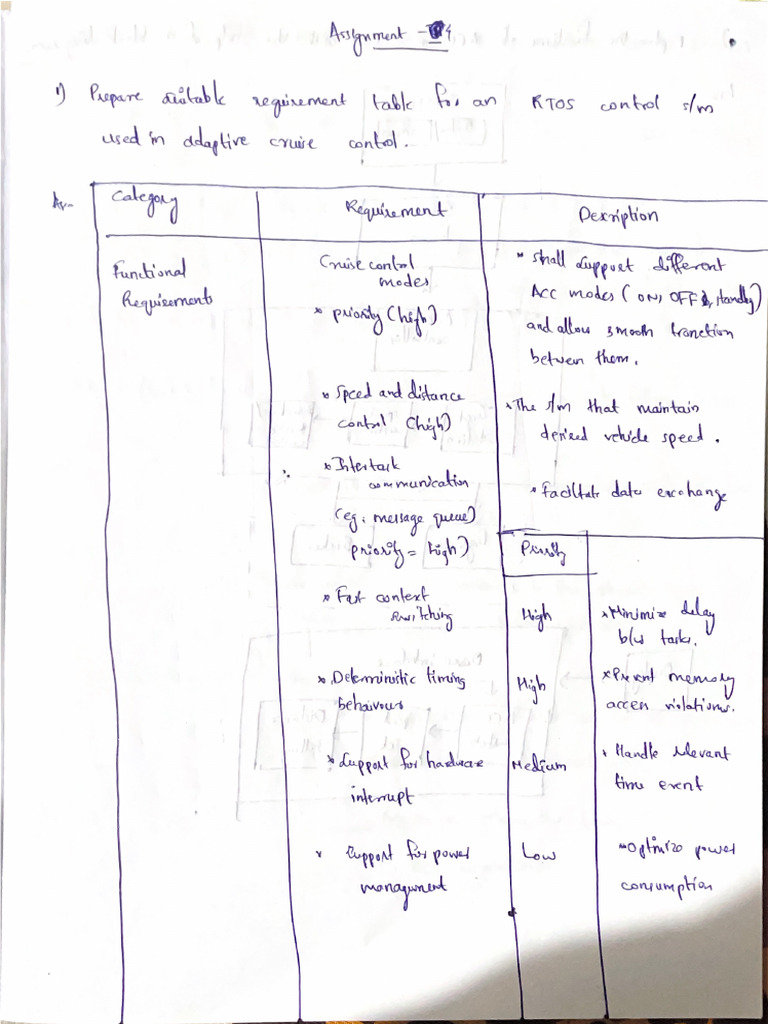 Assignment - 4
1) Prepare suitable requirement table for an RTOS control s/m
used in adaptive cruise control.
Category Requirement Description
Functional
Requirements
Cruise control
modes
* priority (high)
* Shall support different
ACC modes ( ON, OFF &, standby)
and allow smooth transition
between them.
* Speed and distance
control (high)
* The s/m that maintain
desired vehicle speed.
* Intertask
communication
(eg: message queue)
priority = high)
* Facilitate data exchange
Priority
* Fast context
switching
High
* Minimize delay
b/w tasks.
* Deterministic timing
behaivours
High
* Prevent memory
access violations.
* Support for hardware
interrupt
Medium
* Handle relevant
time event
* Support for power
managment
Low
* Optimize power
consumption